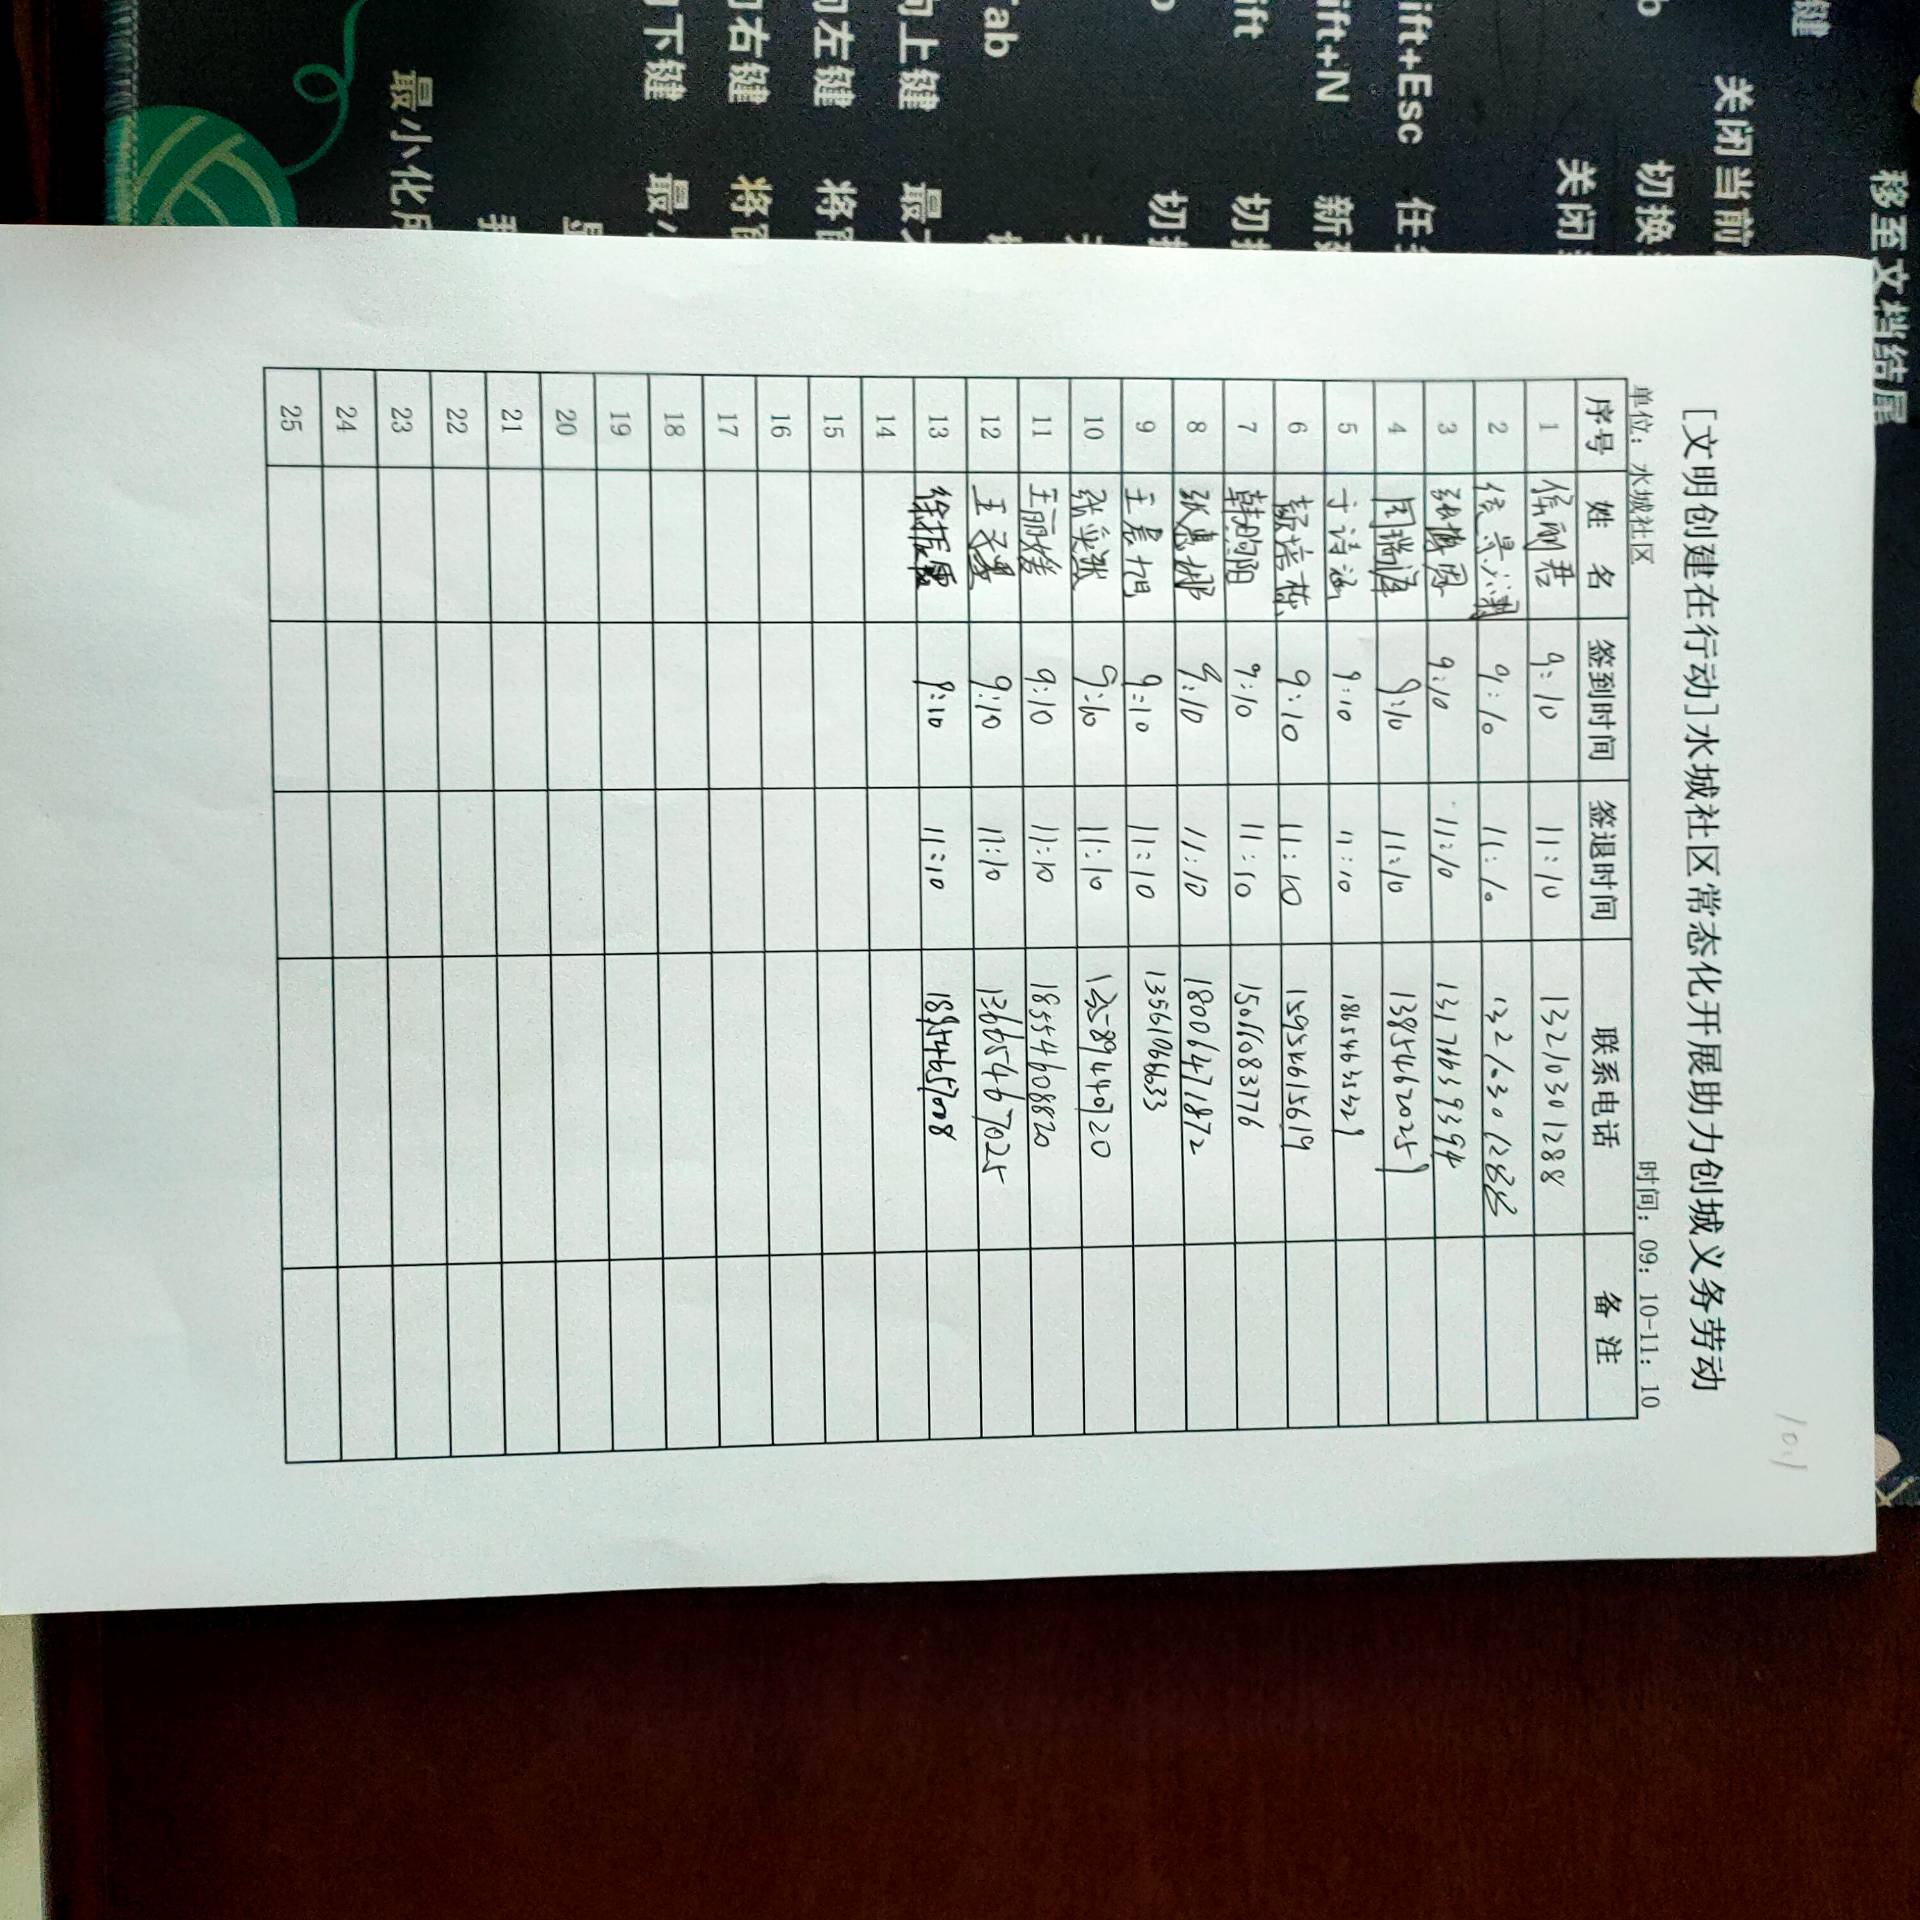 10.1
[文明创建在行动]水城社区常态化开展助力创城义务劳动
单位：水城社区 时间：09：10-11：10
序号 姓 名 签到时间 签退时间 联系电话 备 注
1 9:10 11:10 13210301288
2 9:10 11:10
3 张博恩 9:10 11:10
4 周瑞泽 9:10 11:10 13854620259
5 于诗涵 9:10 11:10 18654635329
6 9:10 11:10 15954615619
7 韩煦阳 9:10 11:10 15066083776
8 张惠娜 9:10 11:10 18006471872
9 王晨旭 9:10 11:10 13561066633
10 9:10 11:10
11 王丽媛 9:10 11:10 18554608820
12 王 9:10 11:10 13665467025
13 徐振 9:10 11:10 18954657008
14
15
16
17
18
19
20
21
22
23
24
25
键
移至文档结尾
关闭当前
切换
关闭
ift+Esc 任
ift+N 新
ift 切
切
Tab
向上键 最
向左键 将
向右键 将
向下键 最
最小化